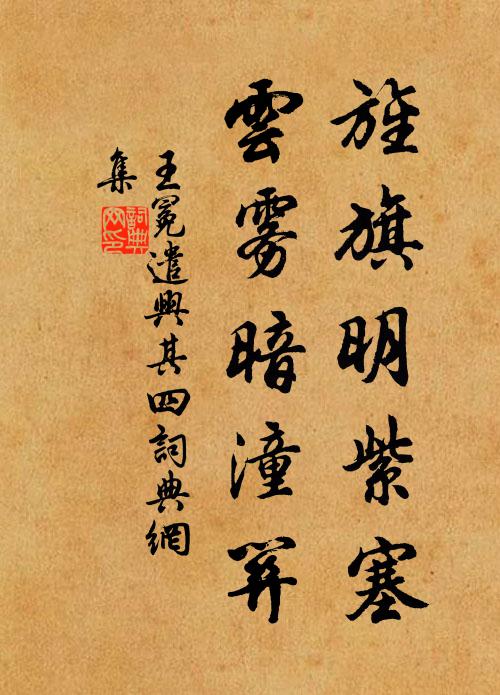 旌旗明紫塞
雲霧暗潼關
王冕遣興其四詞典網
集
詞典
网印